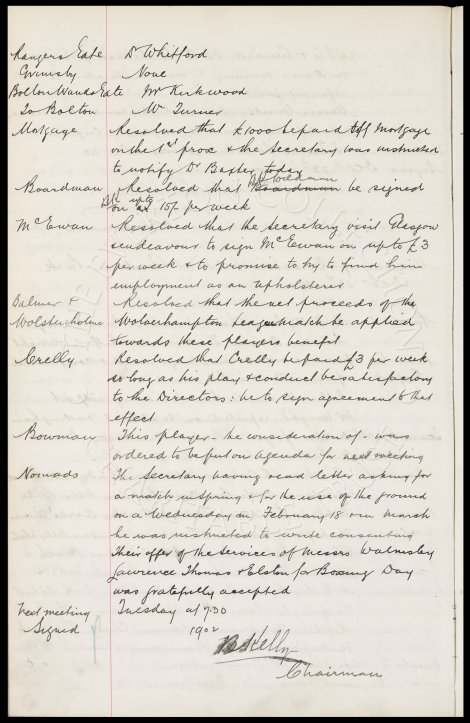 Rangers Gate Dr Whitford
Grimsby None
Bolton Wands Gate Mr Kirkwood
To Bolton Mr Turner
Mortgage Resolved that £1000 be paid off Mortgage
on the 1st prox & the Secretary was instructed
to notify Dr Baxter today
Boardman Resolved that Boardman be signed
on at up to 15/- per week
McEwan Resolved that the secretary visit Glasgow
endeavour to sign McEwan on up to £3
per week & to promise to try to find him
employment as an upholsterer
Balmer & Resolved that the net proceeds of the
Wolstenholme Wolverhampton League match be applied
towards these players benefit
Crelly Resolved that Crelly be paid £3 per week
so long as his play & conduct be satisfactory
to the Directors: he to sign agreement to that
effect
Bowman This player - the consideration of - was
ordered to be put on agenda for next meeting
Nomads The Secretary having read letter asking for
a match in Spring & for the use of the ground
on a Wednesday in February 18 or in March
he was instructed to write consenting
Their offer of the services of Messrs Walmsley
Lawrence Thomas & Elston for Boxing Day
was gratefully accepted
Next meeting Tuesday at 7.30
Signed 1902
Kelly
Chairman